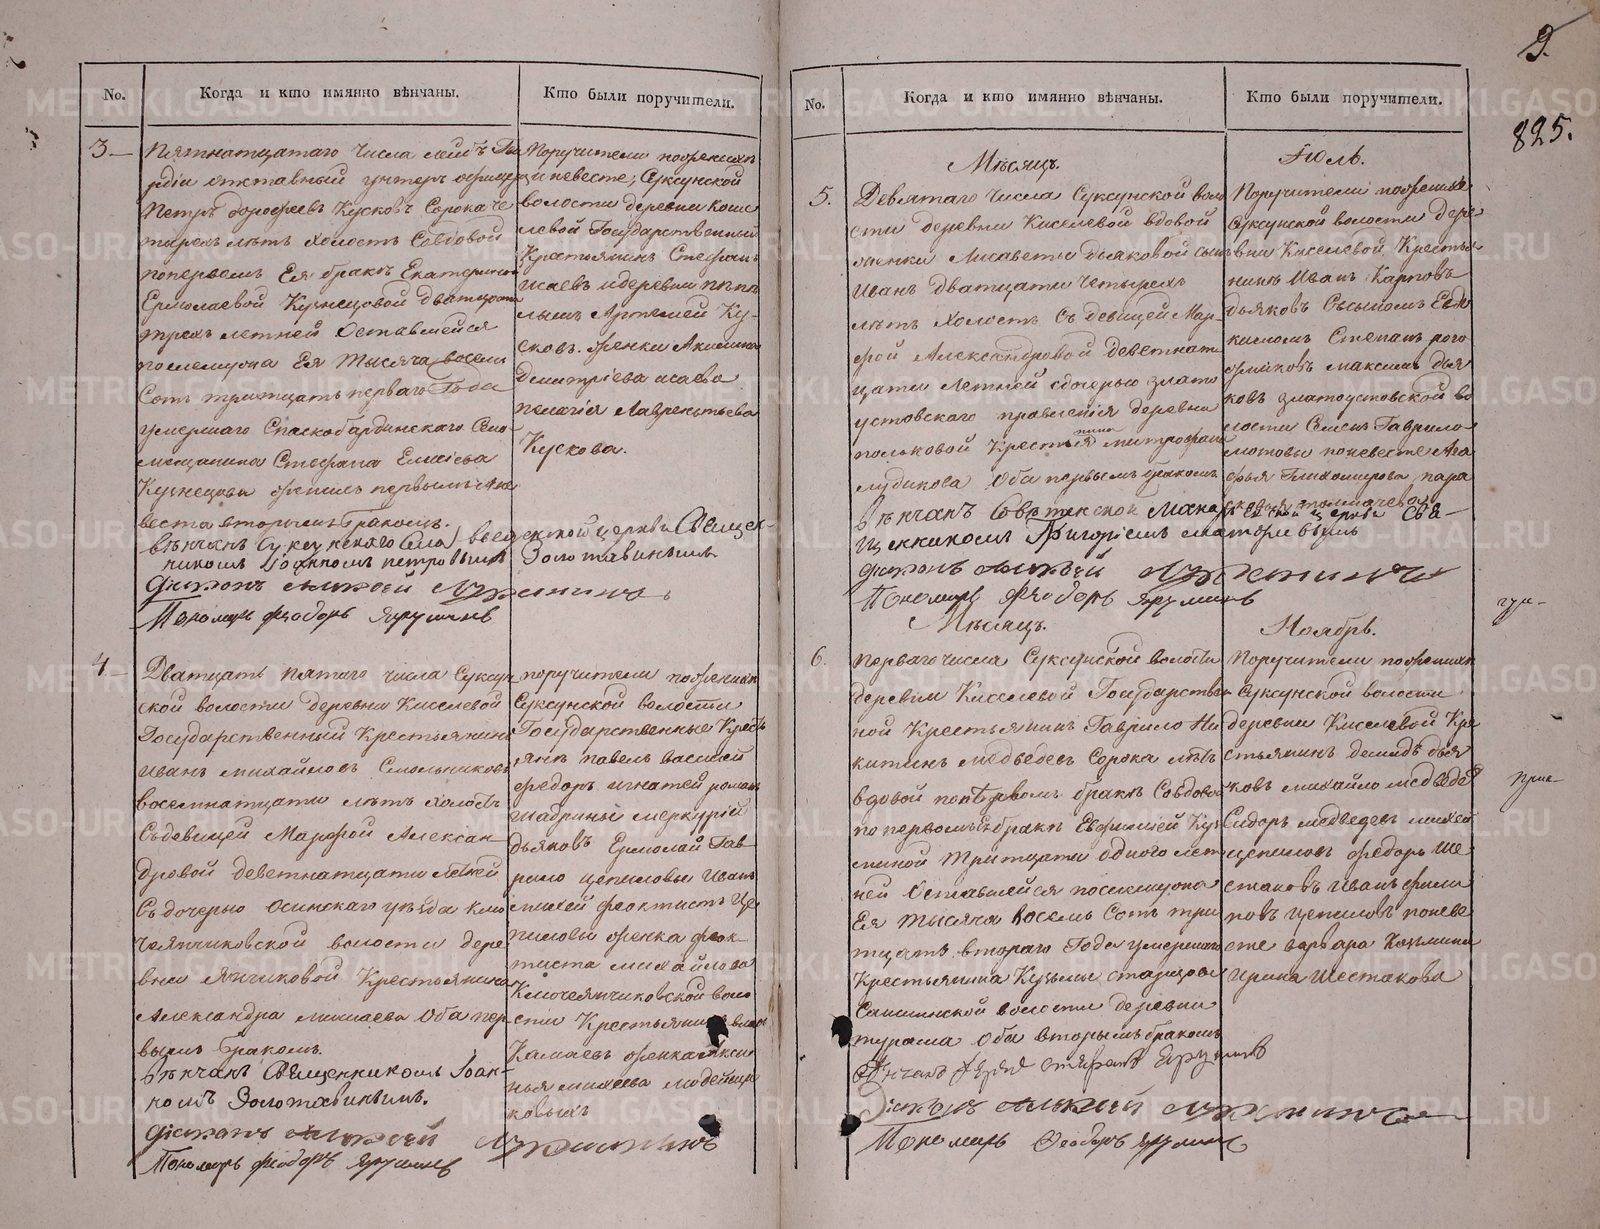 9.
825.
No.
Когда и кто имянно вѣнчаны.
Кто были поручители.
3.
Пятнатцатаго числа лейбъ Гва
рдіи отставный унтеръ офицеръ
Петръ дорофеевъ Кусковъ Сорока че
тырехъ лѣтъ холостъ Совдовой
попервомъ Ея бракѣ Екатериной
Ермолаевой Кузнецовой дватцати
трехъ летней Оставшейся
послемужа Ея тысяча восемь
Сотъ тритцать перваго Года
умершаго Спаскобардинскаго Село
Стефана Елисіева
Кузнецова женихъ первымъ а не
веста вторымъ бракомъ.
Вѣнчанъ Суксунскаго Села введенской церкви Священ-
никомъ Іоанномъ петровымъ Золотавинымъ
Діаконъ Алексей
Пономарь Феодоръ Ярушинъ
Поручители поженихѣ
и невесте, Суксунской
волости деревни Кисе
левой Государственный
Крестьянинъ Стефанъ
исаевъ идеревни
Артемей Ку-
сковъ. женки Акилина
Дмитріева исаева
пелагія Лаврентьева
Кускова.
4
Дватцать пятаго числа Суксун
ской волости деревни Киселевой
Государственный Крестьянинъ
Иванъ михайловъ Смольниковъ
восемнатцати лѣтъ холостъ
Съдевицей Марфой Алексан-
дровой деветнатцати летней
Съдочерью Осинскаго уѣзда Клю
чеянчиковской волости дере
вни Янчиковой Крестьянина
Александра минаева Оба пер
вымъ бракомъ.
Вѣнчанъ Священникомъ Іоан-
номъ Золотавинымъ.
Діаконъ Алексей
Пономарь Феодоръ Ярушинъ
поручители поженихѣ
Суксунской волости
Государственные Кресть
яне павелъ василей
федоръ игнатей романъ
шабрины меркурій
дьяковъ Ермолай Гав
рило цепиловы Иванъ
михей феоктистъ Це
пиловы женка феок-
тиста михайлова
Ключеянчиковской воло
сти Крестьянинъ
Камаевъ женка
михеева
ковыхъ
No.
Когда и кто имянно вѣнчаны.
Кто были поручители.
Мѣсяцъ.
Іюль.
5.
Девятаго числа Суксунской воло
сти деревни Киселевой вдовой
женки Лисаветы дьяковой сынъ
Иванъ дватцати четырехъ
лѣтъ холостъ съ девицей Мар-
фой Александровой деветнат
цати летней сдочерью злато
устовскаго правленія деревни
польковой крестьянина митрофана
лудикова Оба первымъ бракомъ
Вѣнчанъ Священникомъ Григоріемъ
Діаконъ Алексей
Пономарь Феодоръ Ярушинъ
Поручители поженихѣ
Суксунской волости дере
вни Киселевой Крестья
нинъ Иванъ Карповъ
дьяковъ Сосыномъ Евдо
кимомъ Степанъ рого
жниковъ максимъ дья
ковъ златоустовской во
лости Семенъ Гаврило
мотовы поневесте Ага
фья Тихомирова пара
Мѣсяцъ.
Ноябрь.
6.
перваго числа Суксунской волости
деревни Киселевой Государствен
ной Крестьянинъ Гаврило Ни
китинъ медведевъ Сорока лѣтъ
вдовой попервомъ бракѣ Совдовой
по первомъ бракѣ Евфимией Кузь
миной тритцати одного лет
ней Оставшейся послемужа
Ея тысяча восемь Сотъ три
тцать втораго Года умершаго
Крестьянина Кузьмы старцова
волости деревни
турыша Оба вторымъ бракомъ
Вѣнчанъ Іерей Стефанъ Ярушинъ
Діаконъ Алексей
Пономарь Феодоръ Ярушинъ
Поручители поженихѣ
Суксунской волости
деревни Киселевой Кре
стьянинъ демидъ дья
ковъ михайло медведев
Сидоръ медведевъ михей
цепиловъ федоръ ше
стаковъ иванъ фили
повъ цепиловъ поневе
сте варвара Козьмина
Ирина шестакова